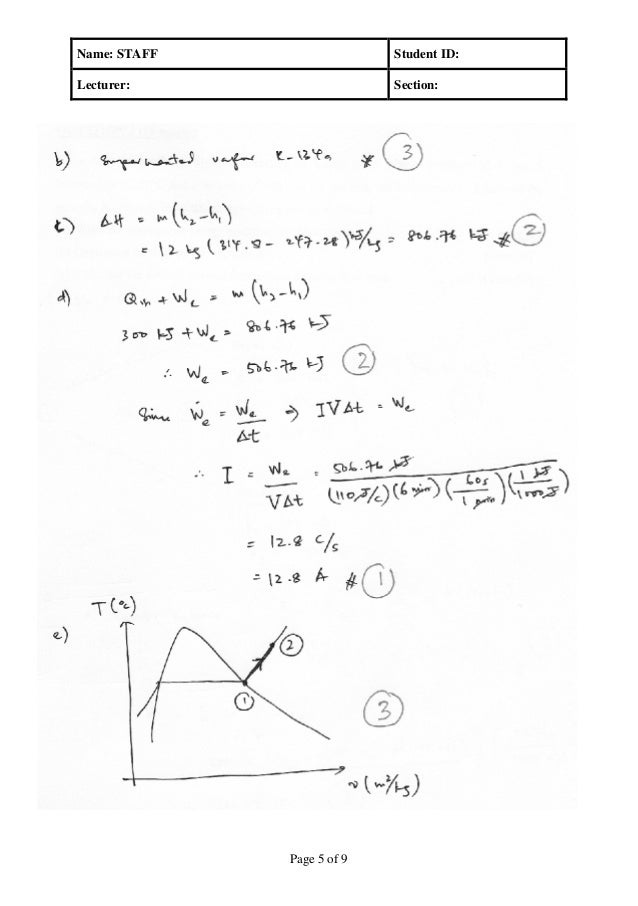 Name: STAFF Student ID:
Lecturer: Section:
b) Superheated vapor R-134a # (3)
c) ΔH = m(h₂-h₁)
= 12 kg (314.5 - 247.28) kJ/kg = 806.76 kJ # (2)
d) Qin + We = m (h₂-h₁)
300 kJ + We = 806.76 kJ
∴ We = 506.76 kJ (2)
Since Ẇe = We/Δt ⇒ IVΔt = We
∴ I = We/VΔt = 506.76 kJ/(110 J/C)(6 min)(60s/1 min)(1 kJ/1000J)
= 12.8 C/s
= 12.8 A # (1)
e) T(°C)
(2)
(1)
(3)
v (m³/kg)
Page 5 of 9